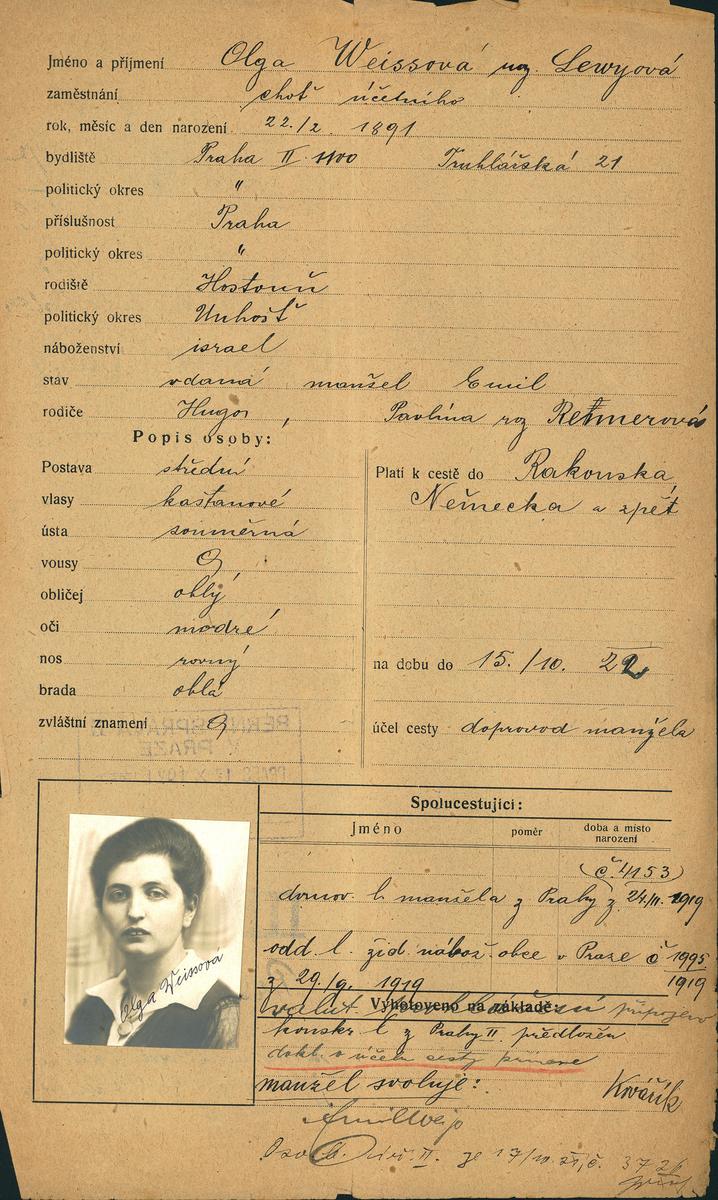 Jméno a příjmení Olga Weissová roz Lewyová
zaměstnání choť účetního
rok, měsíc a den narození 22./2. 1891
bydliště Praha II 1100 Truhlářská 21
politický okres "
příslušnost Praha
politický okres "
rodiště Hostouň
politický okres Unhošť
náboženství israel
stav vdaná manžel Emil
rodiče Hugo, Pavlína roz
Popis osoby:
Postava střední
Platí k cestě do Rakouska,
vlasy kaštanové
Německa a zpět
ústa souměrná
vousy
obličej oblý
oči modré
nos rovný
na dobu do 15./10. 22
brada oblá
zvláštní znamení
účel cesty doprovod manžela
BERNÍ SPRÁVA
V PRAZE
Spolucestující:
Jméno poměr doba a místo narození
(č. 4153)
domov. l. manžela z Prahy z 1919
odd. l. žid. nábož. obce v Praze č 1995
z 29./9. 1919 1919
Vyhotoveno na základě:
konskr. l. z Prahy II. předložen
dokl. o účelu cesty
manžel svoluje: Kovářík
Olga Weissová
Emil Weiss
II. ze 17/10. 21, č. 3726